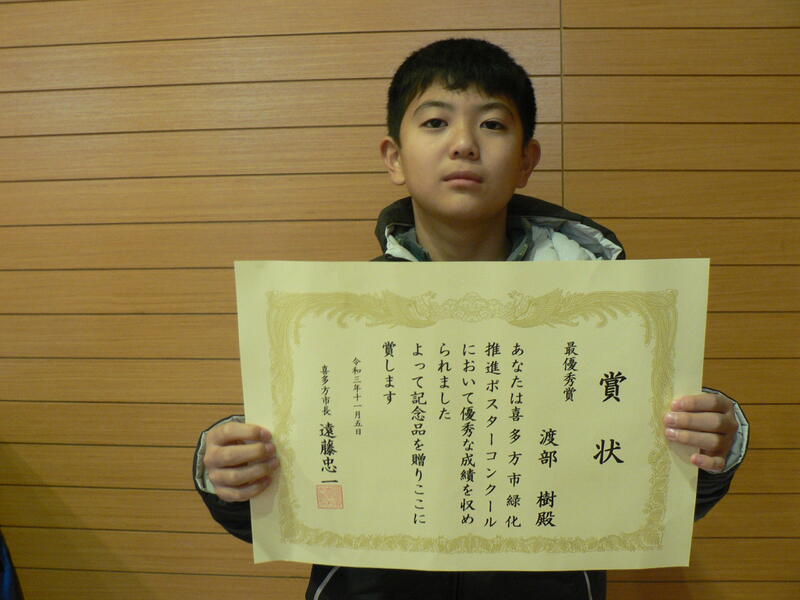 賞状
最優秀賞
渡部 樹殿
あなたは喜多方市緑化
推進ポスターコンクール
において優秀な成績を収め
られました
よって記念品を贈りここに
賞します
令和三年十一月五日
喜多方市長 遠藤忠一